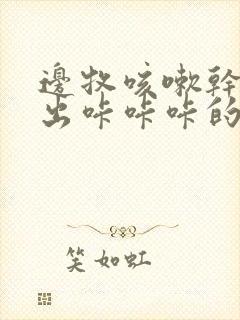 邊牧咳嗽幹
出咔咔咔的
笑如虹